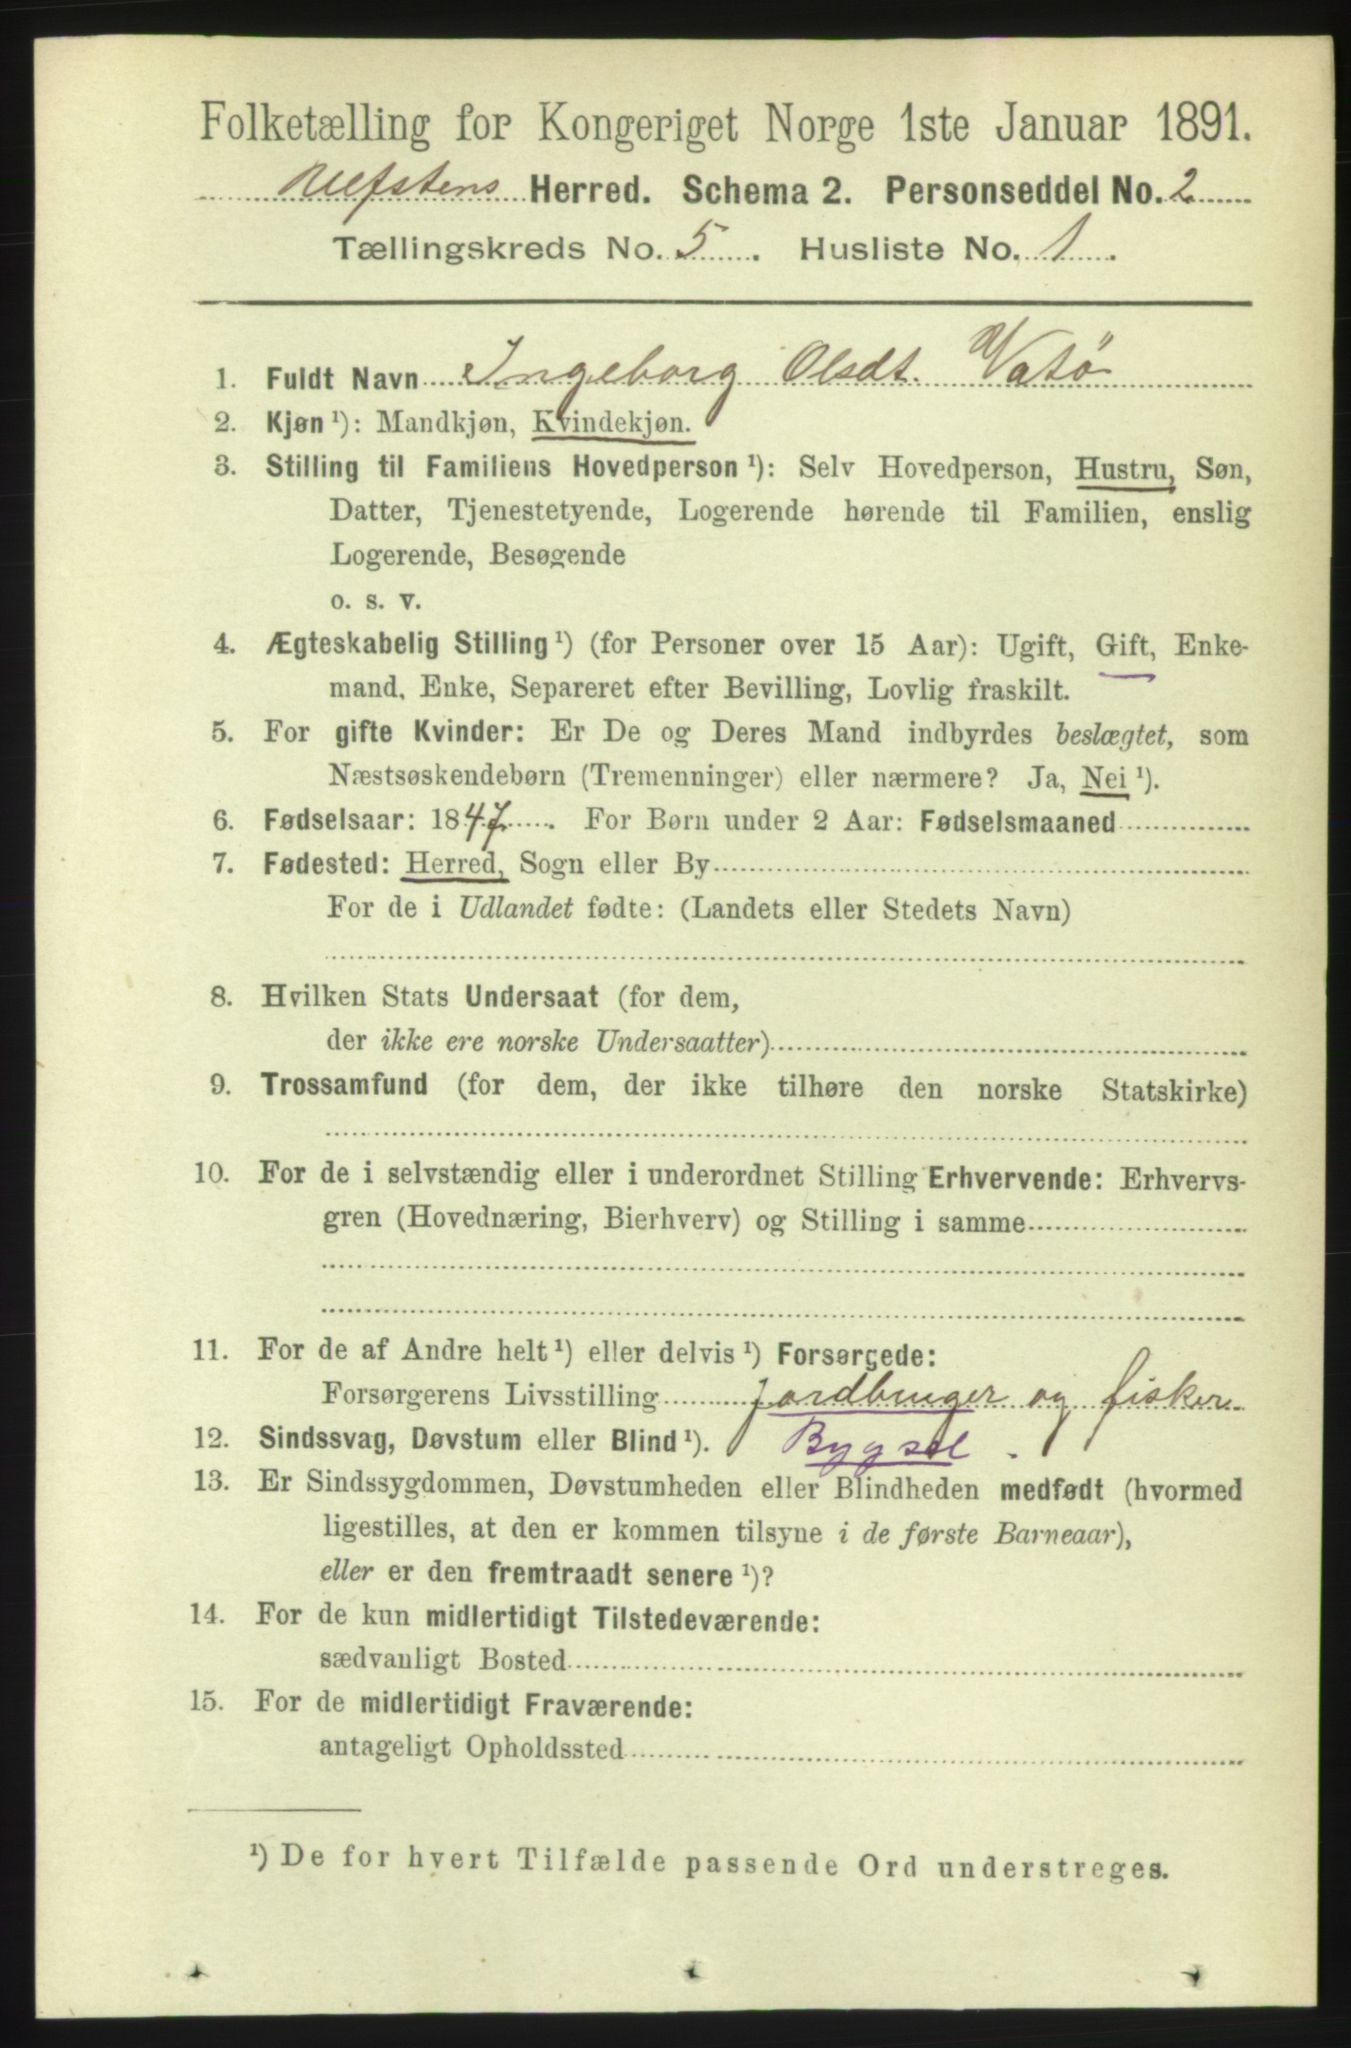 Folketælling for Kongeriget Norge 1ste Januar 1891.
Ulfstens Herred. Schema 2. Personseddel No. 2
Tællingskreds No. 5. Husliste No. 1.
1. Fuldt Navn Ingeborg Olsdt. Vatø
2. Kjøn ¹): Mandkjøn, Kvindekjøn.
3. Stilling til Familiens Hovedperson ¹): Selv Hovedperson, Hustru, Søn,
Datter, Tjenestetyende, Logerende hørende til Familien, enslig
Logerende, Besøgende
o. s. v.
4. Ægteskabelig Stilling ¹) (for Personer over 15 Aar): Ugift, Gift, Enke-
mand, Enke, Separeret efter Bevilling, Lovlig fraskilt.
5. For gifte Kvinder: Er De og Deres Mand indbyrdes beslægtet, som
Næstsøskendebørn (Tremenninger) eller nærmere? Ja, Nei ¹).
6. Fødselsaar: 1847. For Børn under 2 Aar: Fødselsmaaned
7. Fødested: Herred, Sogn eller By
For de i Udlandet fødte: (Landets eller Stedets Navn)
8. Hvilken Stats Undersaat (for dem,
der ikke ere norske Undersaatter)
9. Trossamfund (for dem, der ikke tilhøre den norske Statskirke)
10. For de i selvstændig eller i underordnet Stilling Erhvervende: Erhvervs-
gren (Hovednæring, Bierhverv) og Stilling i samme
11. For de af Andre helt ¹) eller delvis ¹) Forsørgede:
Forsørgerens Livsstilling jordbruger og fisker
12. Sindssvag, Døvstum eller Blind ¹). Bygsel
13. Er Sindssygdommen, Døvstumheden eller Blindheden medfødt (hvormed
ligestilles, at den er kommen tilsyne i de første Barneaar),
eller er den fremtraadt senere ¹)?
14. For de kun midlertidigt Tilstedeværende:
sædvanligt Bosted
15. For de midlertidigt Fraværende:
antageligt Opholdssted
¹) De for hvert Tilfælde passende Ord understreges.